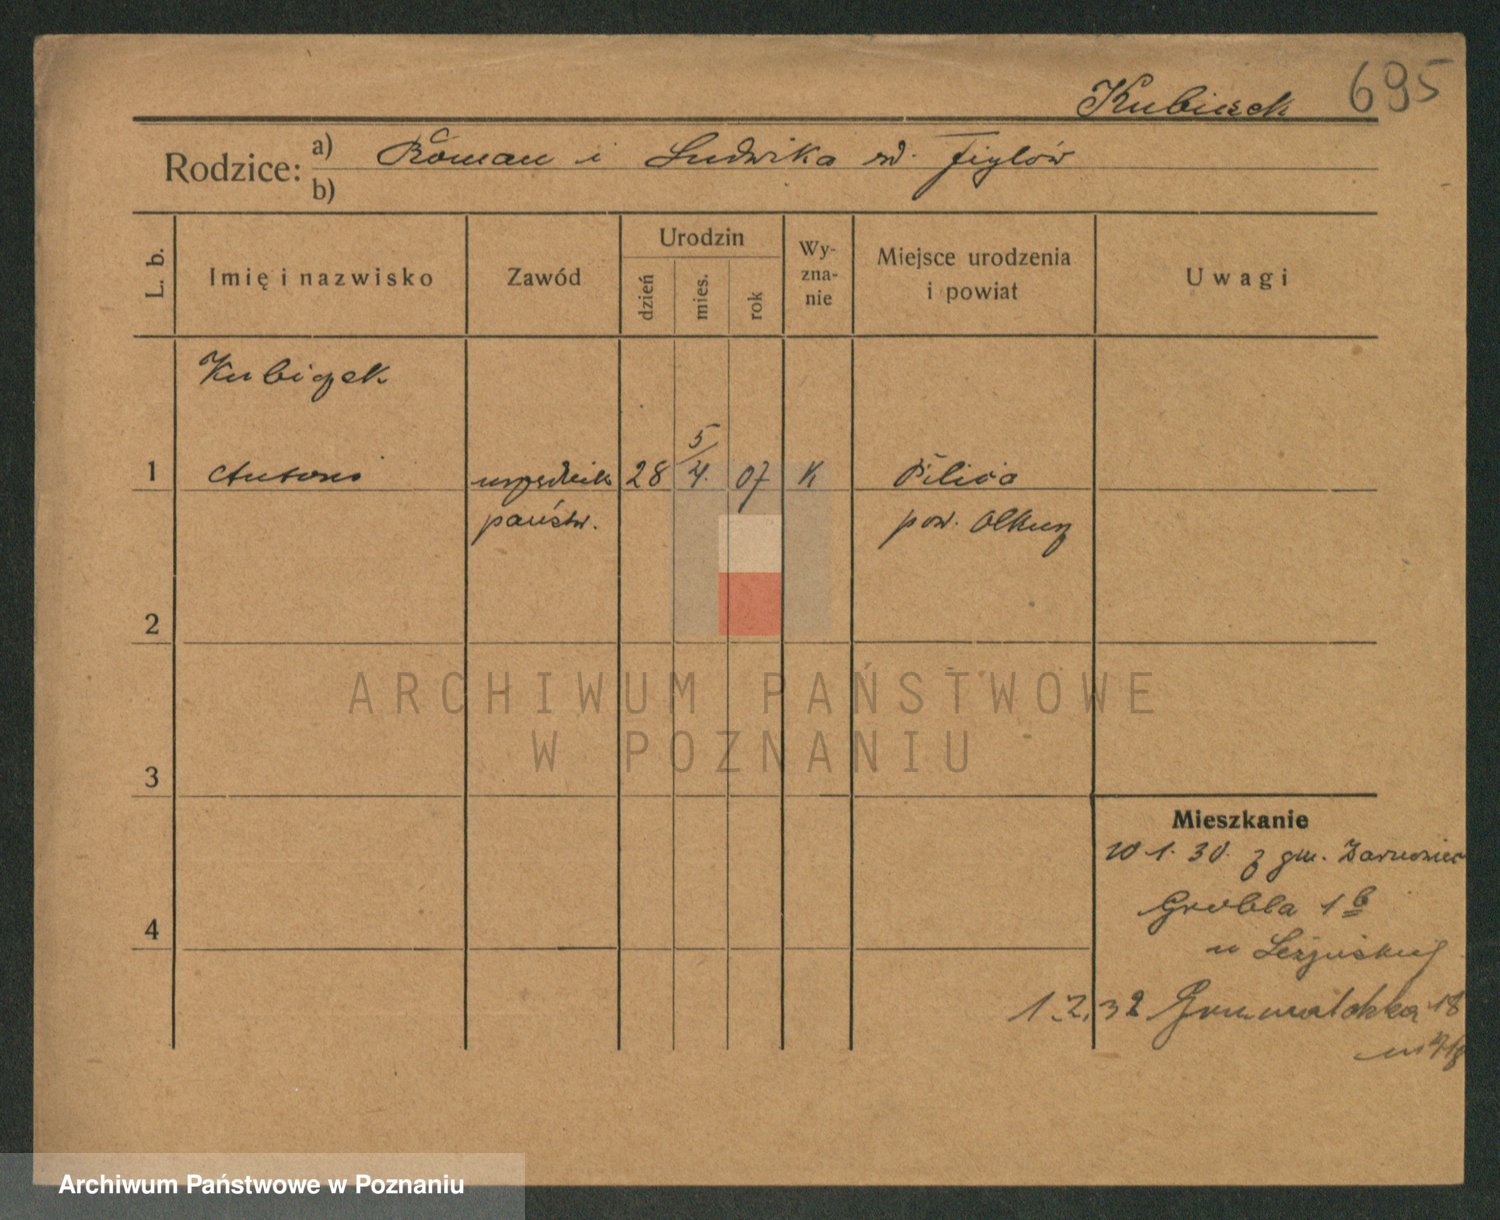 Kubiczek 695
Rodzice: a) Roman i Ludwika
b)
L. b.
Imię i nazwisko
Zawód
Urodzin
dzień
mies.
rok
Wy-
zna-
nie
Miejsce urodzenia
i powiat
Uwagi
Kubiczek
1 Antoni urzędnik 28 5/4. 07 K Pilica
państw. pow. Olkusz
2
3
4
Mieszkanie
1. 30. z gm. Żarnowiec
Grobla 1 b
u
1.2.32 18
ARCHIWUM PAŃSTWOWE
W POZNANIU
Archiwum Państwowe w Poznaniu